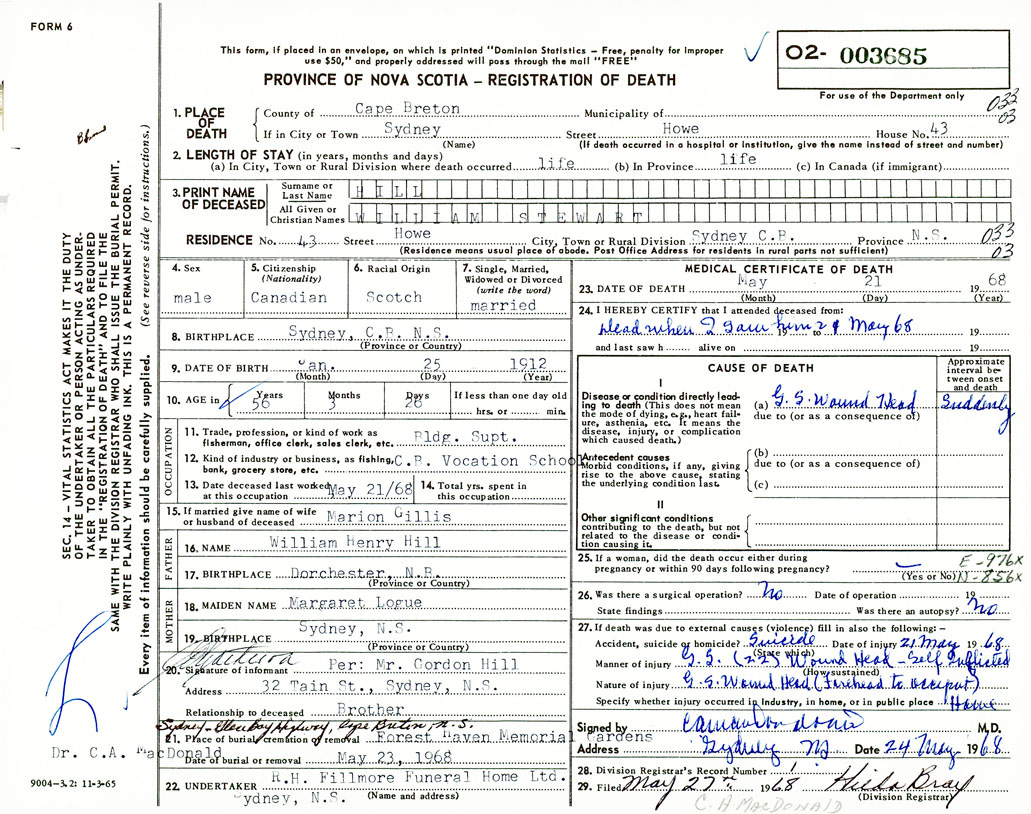 FORM 6
This form, if placed in an envelope, on which is printed "Dominion Statistics – Free, penalty for improper
use $50," and properly addressed will pass through the mail "FREE"
PROVINCE OF NOVA SCOTIA – REGISTRATION OF DEATH
02- 003685
For use of the Department only
033
03
1. PLACE OF DEATH
County of Cape Breton Municipality of
If in City or Town Sydney Street Howe House No. 43
(Name) (If death occurred in a hospital or institution, give the name instead of street and number)
2. LENGTH OF STAY (in years, months and days)
(a) In City, Town or Rural Division where death occurred life (b) In Province life (c) In Canada (if immigrant)
3. PRINT NAME OF DECEASED
Surname or Last Name HILL
All Given or Christian Names WILLIAM STEWART
RESIDENCE No. 43 Street Howe City, Town or Rural Division Sydney C.B. Province N.S.
(Residence means usual place of abode. Post Office Address for residents in rural parts not sufficient)
033
03
4. Sex
male
5. Citizenship
(Nationality)
Canadian
6. Racial Origin
Scotch
7. Single, Married,
Widowed or Divorced
(write the word)
married
8. BIRTHPLACE Sydney, C.B. N.S.
(Province or Country)
9. DATE OF BIRTH Jan. 25 1912
(Month) (Day) (Year)
10. AGE in Years Months Days If less than one day old
56 3 26 hrs. or min.
OCCUPATION
11. Trade, profession, or kind of work as
fisherman, office clerk, sales clerk, etc. Bldg. Supt.
12. Kind of industry or business, as fishing,
bank, grocery store, etc. C.B. Vocation School
13. Date deceased last worked
at this occupation May 21/68
14. Total yrs. spent in
this occupation
15. If married give name of wife
or husband of deceased Marion Gillis
FATHER
16. NAME William Henry Hill
17. BIRTHPLACE Dorchester, N.B.
(Province or Country)
MOTHER
18. MAIDEN NAME Margaret Logue
19. BIRTHPLACE Sydney, N.S.
(Province or Country)
20. Signature of informant Per: Mr. Gordon Hill
Address 32 Tain St., Sydney, N.S.
Relationship to deceased Brother
Sydney-Glace Bay Highway, Cape Breton, N.S.
21. Place of burial, cremation or removal Forest Haven Memorial Gardens
Date of burial or removal May 23, 1968
22. UNDERTAKER R.H. Fillmore Funeral Home Ltd.
Sydney, N.S. (Name and address)
MEDICAL CERTIFICATE OF DEATH
23. DATE OF DEATH May 21 1968
(Month) (Day) (Year)
24. I HEREBY CERTIFY that I attended deceased from:
Dead when I saw him 21 May 68 19 19
and last saw h alive on 19
CAUSE OF DEATH
Approximate interval between onset and death
I
Disease or condition directly leading to death (This does not mean the mode of dying, e.g., heart failure, asthenia, etc. It means the disease, injury, or complication which caused death.)
(a) G.S. Wound Head Suddenly
due to (or as a consequence of)
Antecedent causes
Morbid conditions, if any, giving rise to the above cause, stating the underlying condition last.
(b)
due to (or as a consequence of)
(c)
II
Other significant conditions
contributing to the death, but not related to the disease or condition causing it.
25. If a woman, did the death occur either during
pregnancy or within 90 days following pregnancy?
(Yes or No)
E-976X
N-856X
26. Was there a surgical operation? No Date of operation 19
State findings Was there an autopsy? No
27. If death was due to external causes (violence) fill in also the following:–
Accident, suicide or homicide? Suicide Date of injury 21 May 1968
(State which)
Manner of injury G.S. (22) Wound Head - Self Inflicted
(How sustained)
Nature of injury G.S. Wound Head (Forehead to occiput)
Specify whether injury occurred in industry, in home, or in public place Home
Signed by M.D.
Address Sydney NS Date 24 May 1968
28. Division Registrar's Record Number
29. Filed May 27th 1968 Hilda Bray
(Division Registrar)
C. A MACDONALD
SEC. 14 – VITAL STATISTICS ACT MAKES IT THE DUTY
OF THE UNDERTAKER OR PERSON ACTING AS UNDER-
TAKER TO OBTAIN ALL THE PARTICULARS REQUIRED
IN THE "REGISTRATION OF DEATH" AND TO FILE THE
SAME WITH THE DIVISION REGISTRAR WHO SHALL ISSUE THE BURIAL PERMIT.
WRITE PLAINLY WITH UNFADING INK. THIS IS A PERMANENT RECORD.
Every item of information should be carefully supplied. (See reverse side for instructions.)
Dr. C.A. MacDonald
9004-3.2: 11-3-65